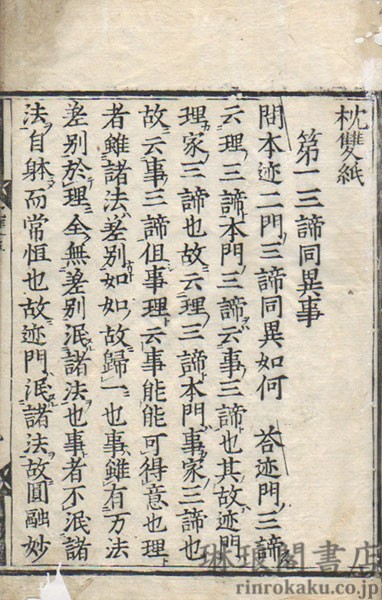 枕雙紙
苐一三諦同異事
問本迹二門三諦同異如何　荅迹門三諦
云理三諦本門三諦云事三諦也其故迹門
理家三諦也故云理三諦本門事家三諦也
故云事三諦但事理云事能能可得意也理
者雖諸法差別如如故歸一也事雖有万法
差別於理全無差別泯諸法也事者不泯諸
法自躰而常恒也故迹門泯諸法故圓融妙
琳琅閣書店
rinrokaku.co.jp